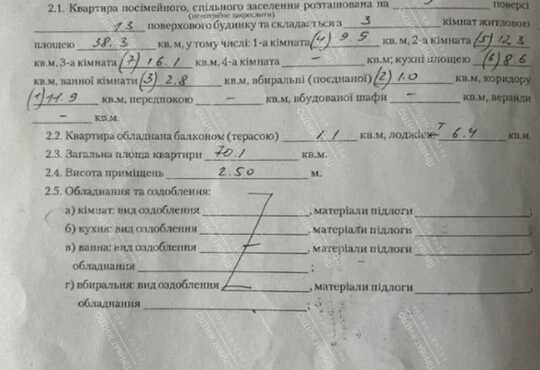 2.1. Квартира посімейного, спільного заселення розташована на поверсі
(непотрібне закреслити)
13 поверхового будинку та складається з 3 кімнат житловою
площею 38.3 кв. м, у тому числі: 1-а кімната (4) 9.5 кв. м, 2-а кімната (5) 12.3
кв.м, 3-а кімната (7) 16.1 кв.м, 4-а кімната – кв.м; кухні площею (6) 8.6
кв.м, ванної кімнати (3) 2.8 кв.м, вбиральні (поєднаної) (2) 1.0 кв.м, коридору
(1) 11.9 кв.м, передпокою – кв.м, вбудованої шафи – кв.м, веранди
– кв.м.
2.2. Квартира обладнана балконом (терасою) 1.1 кв.м, лоджією 6.4 кв.м.
2.3. Загальна площа квартири 70.1 кв.м.
2.4. Висота приміщень 2.50 м.
2.5. Обладнання та оздоблення:
а) кімнат: вид оздоблення , матеріали підлоги
б) кухня: вид оздоблення , матеріали підлоги
в) ванна: вид оздоблення , матеріали підлоги
обладнання ;
г) вбиральня: вид оздоблення , матеріали підлоги
обладнання ;